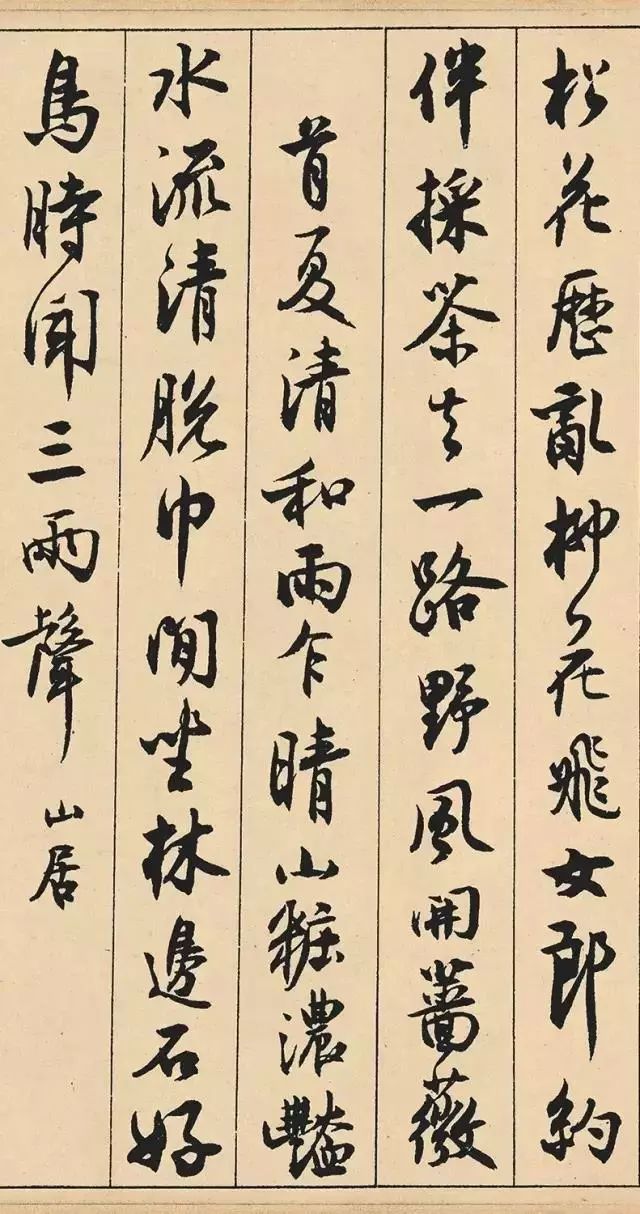 松花歷亂柳花飛女郎約
伴採茶去一路野風開薔薇
首夏清和雨乍晴山粧濃豔
水流清脫巾閒坐林邊石好
鳥時聞三兩聲
山居